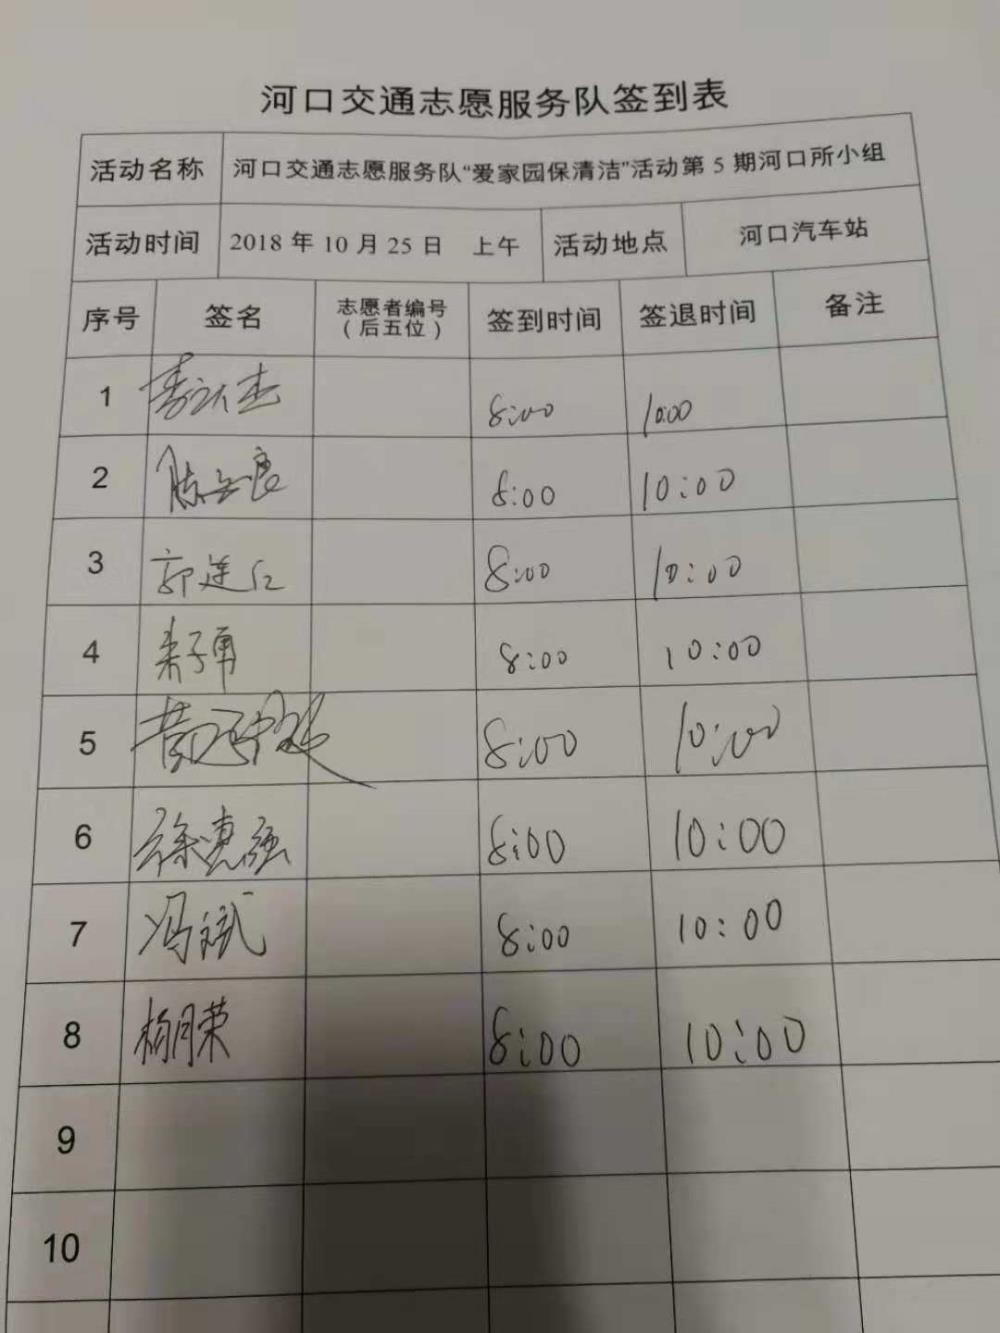 河口交通志愿服务队签到表
活动名称 河口交通志愿服务队“爱家园保清洁”活动第 5 期河口所小组
活动时间 2018 年 10 月 25 日 上午 活动地点 河口汽车站
序号 签名 志愿者编号（后五位） 签到时间 签退时间 备注
1 8:00 10:00
2 8:00 10:00
3 郭连红 8:00 10:00
4 8:00 10:00
5 8:00 10:00
6 徐惠强 8:00 10:00
7 冯斌 8:00 10:00
8 杨月荣 8:00 10:00
9
10